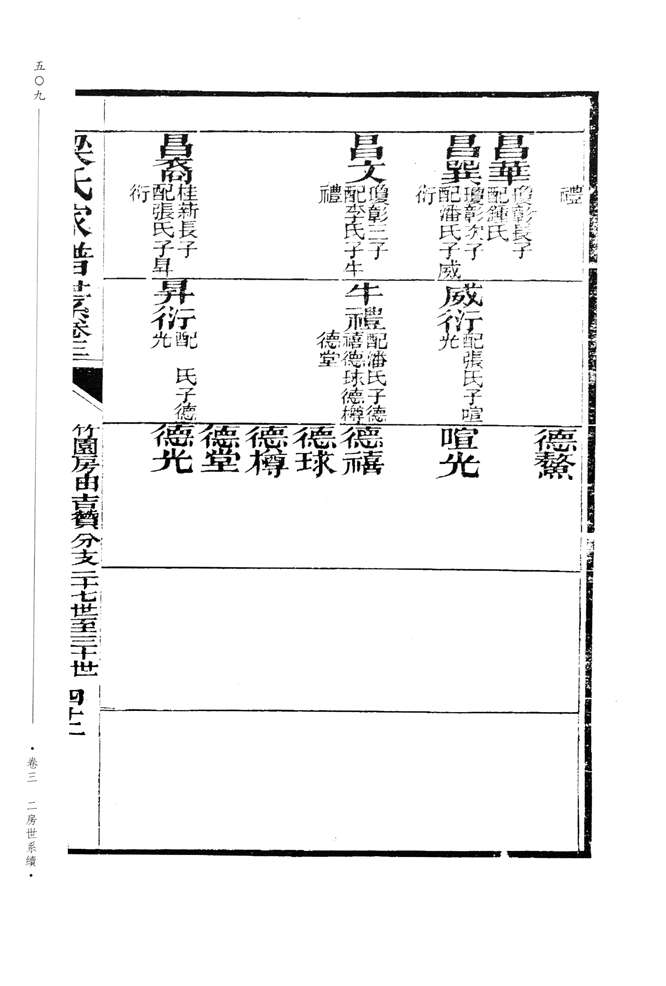 禮
昌華
瓊彰長子
配鍾氏
昌巽
瓊彰次子
配潘氏子威
衍
昌文
瓊彰三子
配李氏子牛
禮
昌裔
桂新長子
配張氏子昇
衍
威衍
配張氏子喧
光
牛禮
配潘氏子德
禧德球德樽
德堂
昇衍
配 氏子德
光
德鰲
喧光
德禧
德球
德樽
德堂
德光
梁氏家譜世系卷三
竹園房由吉贊分支二十七世至三十世
四十二
五〇九
·卷三 二房世系續·